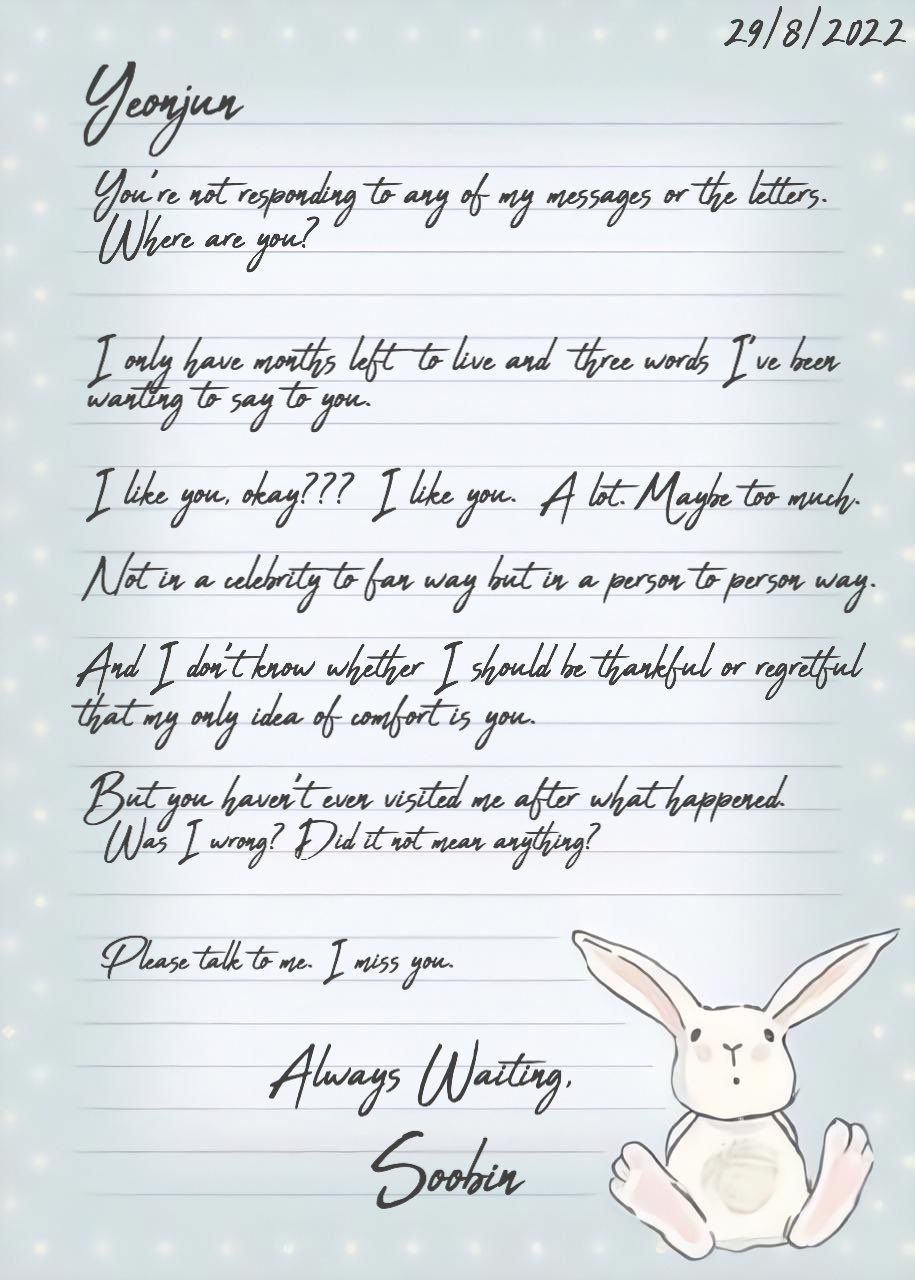 29/8/2022
Yeonjun
You're not responding to any of my messages or the letters.
Where are you?
I only have months left to live and three words I've been
wanting to say to you.
I like you, okay??? I like you. A lot. Maybe too much.
Not in a celebrity to fan way but in a person to person way.
And I don't know whether I should be thankful or regretful
that my only idea of comfort is you.
But you haven't even visited me after what happened.
Was I wrong? Did it not mean anything?
Please talk to me. I miss you.
Always Waiting,
Soobin